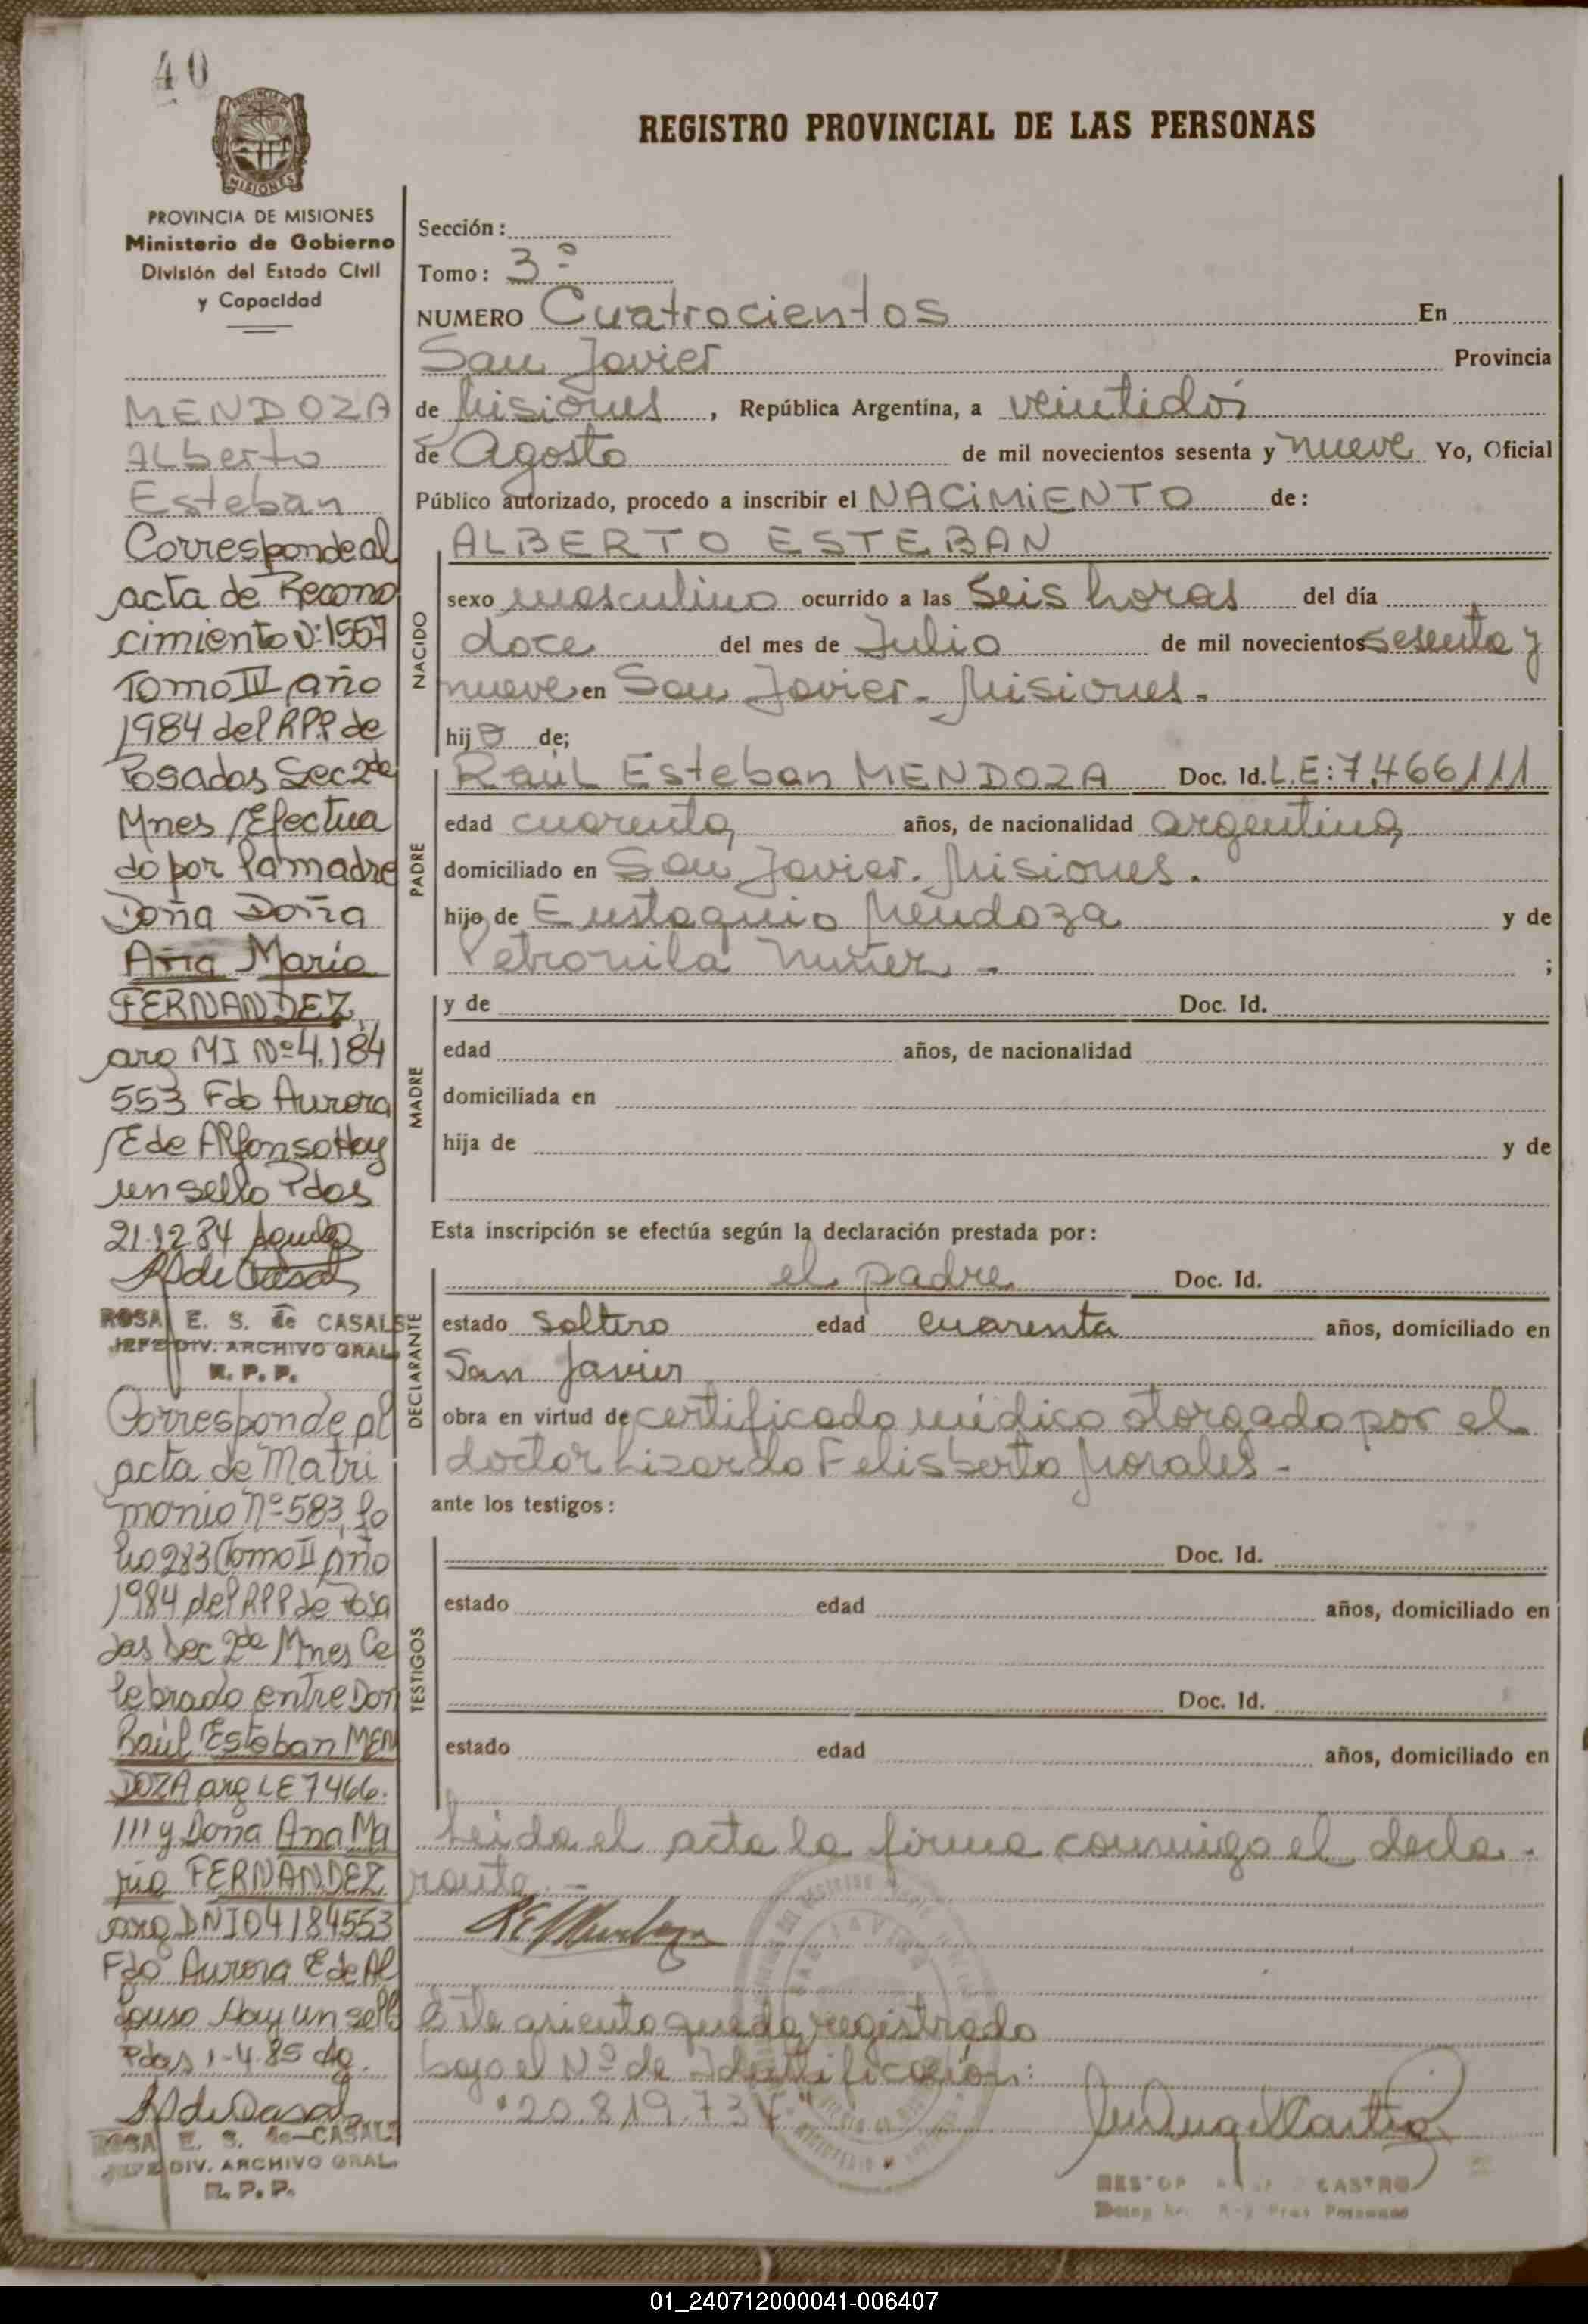 40
PROVINCIA DE MISIONES
Ministerio de Gobierno
División del Estado Civil
y Capacidad
MENDOZA
Alberto
Esteban
Corresponde al
acta de Recono
cimiento Nº 1557
Tomo IV año
1984 del RPP de
Posadas Sec 2da
Mnes /Efectua
do por la madre
Doña Doña
Ana María
FERNANDEZ
arg MI Nº 4.184
553 Fdo Aurora
E de Alfonso Hay
un sello Pdas
21.12.84
ROSA E. S. de CASALS
JEFE DIV. ARCHIVO GRAL.
R. P. P.
Corresponde al
acta de Matri
monio Nº 583, fo
lio 283 Tomo II Año
1984 del RPP de Posa
das Sec 2da Mnes Ce
lebrado entre Don
Raúl Esteban MEN
DOZA arg LE 7466.
111 y Doña Ana Ma
ria FERNANDEZ
arg DNI 04184553
Fdo Aurora E de Al
fonso Hay un sello
Pdas 1-4-85
ROSA E. S. de CASALS
JEFE DIV. ARCHIVO GRAL.
R. P. P.
REGISTRO PROVINCIAL DE LAS PERSONAS
Sección:
Tomo: 3º
NUMERO Cuatrocientos En
San Javier Provincia
de Misiones, República Argentina, a veintidós
de Agosto de mil novecientos sesenta y nueve Yo, Oficial
Público autorizado, procedo a inscribir el NACIMIENTO de:
NACIDO
ALBERTO ESTEBAN
sexo masculino ocurrido a las seis horas del día
doce del mes de Julio de mil novecientos sesenta y
nueve en San Javier. Misiones.
hijo de;
PADRE
Raúl Esteban MENDOZA Doc. Id. L.E: 7.466111
edad cuarenta años, de nacionalidad argentina
domiciliado en San Javier. Misiones.
hijo de Eustaquio Mendoza y de
Petronila Nuñez - ;
MADRE
y de Doc. Id.
edad años, de nacionalidad
domiciliada en
hija de y de
Esta inscripción se efectúa según la declaración prestada por:
DECLARANTE
el padre Doc. Id.
estado soltero edad cuarenta años, domiciliado en
San Javier
obra en virtud de certificado médico otorgado por el
doctor Lizardo Felisberto Morales -
ante los testigos:
TESTIGOS
Doc. Id.
estado edad años, domiciliado en
Doc. Id.
estado edad años, domiciliado en
Leida el acta la firma conmigo el decla-
rante. -
Este asiento queda registrado
bajo el Nº de Identificación:
CASTRO
01_240712000041-006407